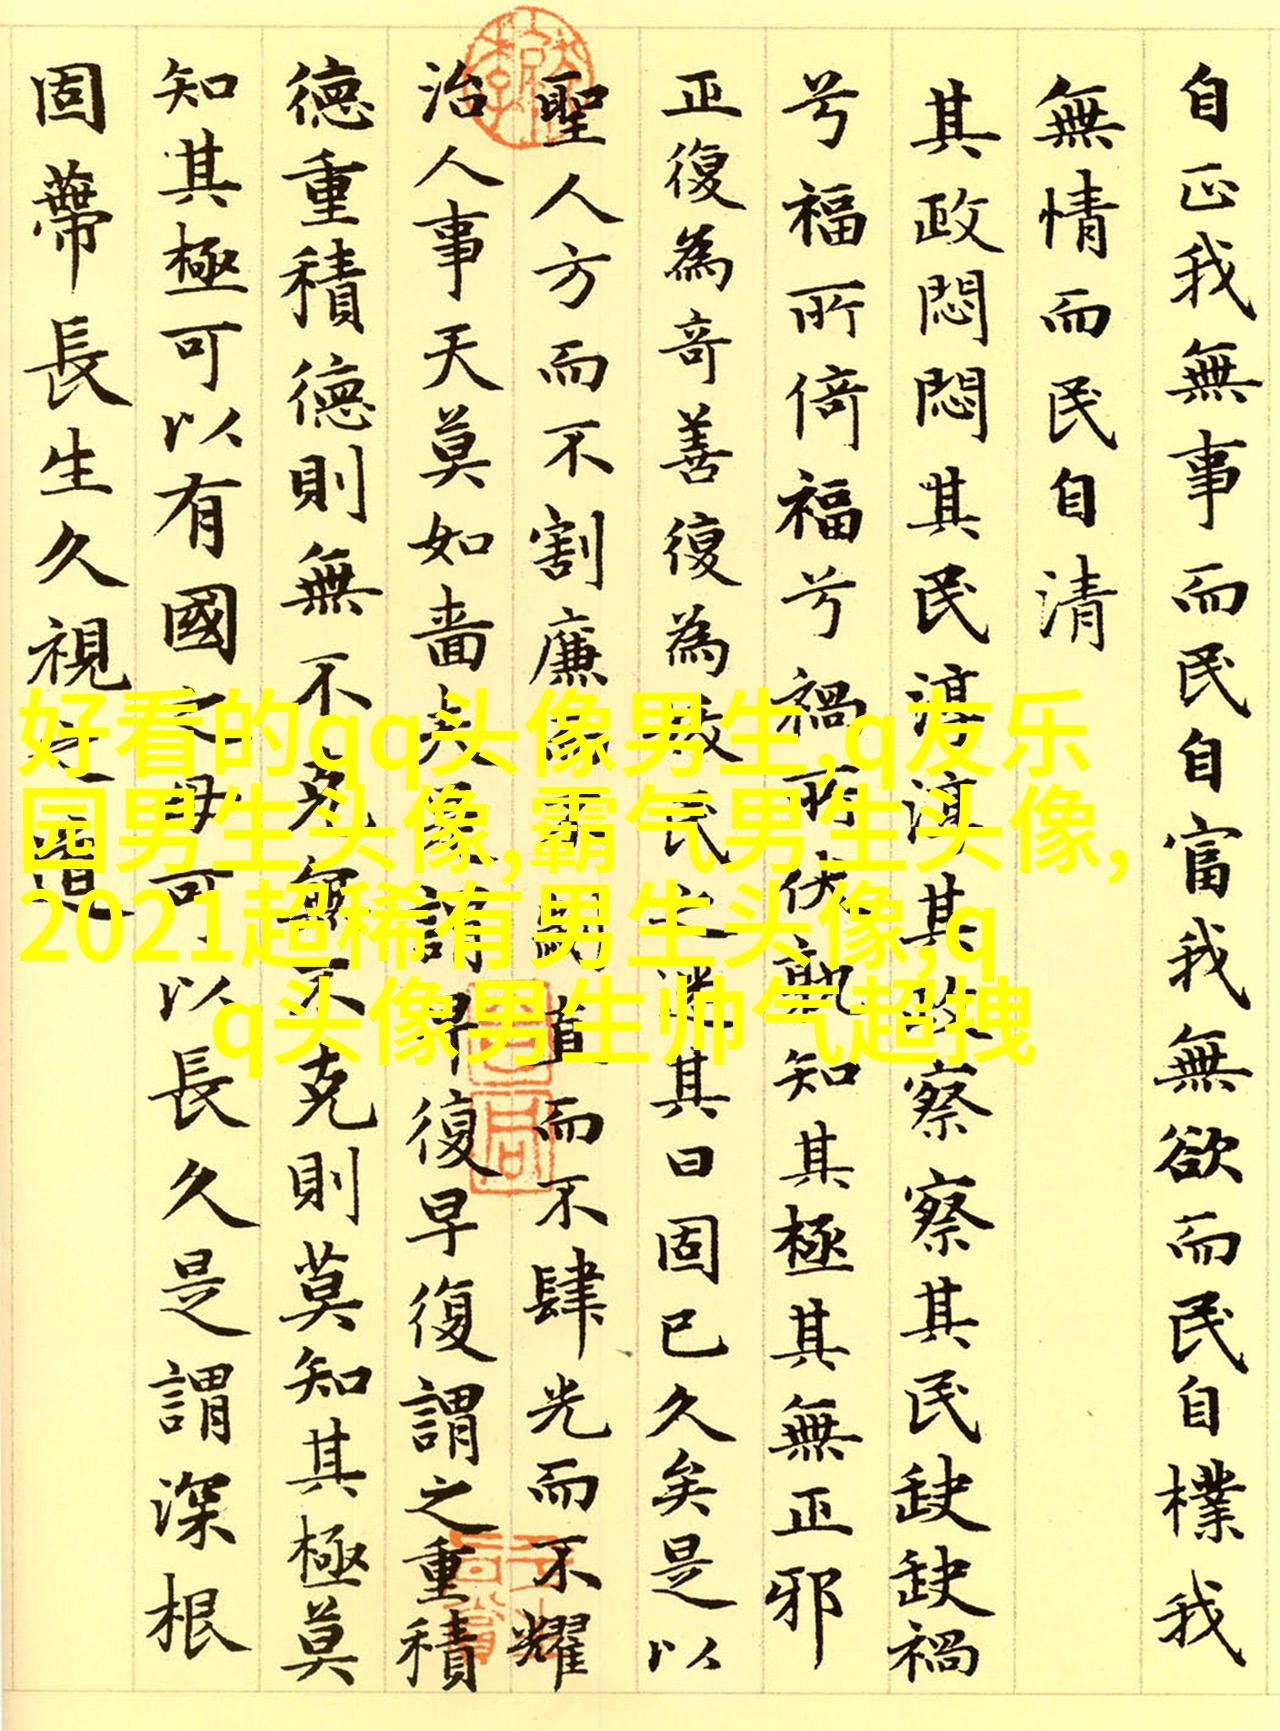 自正我無事而民自富我無欲而民自樸我
無情而民自清
其政悶悶其民淳淳其政察察其民缺缺禍
兮福所倚福兮禍所伏孰知其極其無正邪
正復為奇善復為妖民之迷其日固已久矣是以
聖人方而不割廉而不劌直而不肆光而不耀
治人事天莫如嗇夫謂早復早復謂之重積
德重積德則無不克無不克則莫知其極莫
知其極可以有國之母可以長久是謂深根
固蔕長生久視之道
好看的qq头像男生,q友乐
园男生头像,霸气男生头像,
2021超稀有男生头像,q
q头像男生帅气超拽